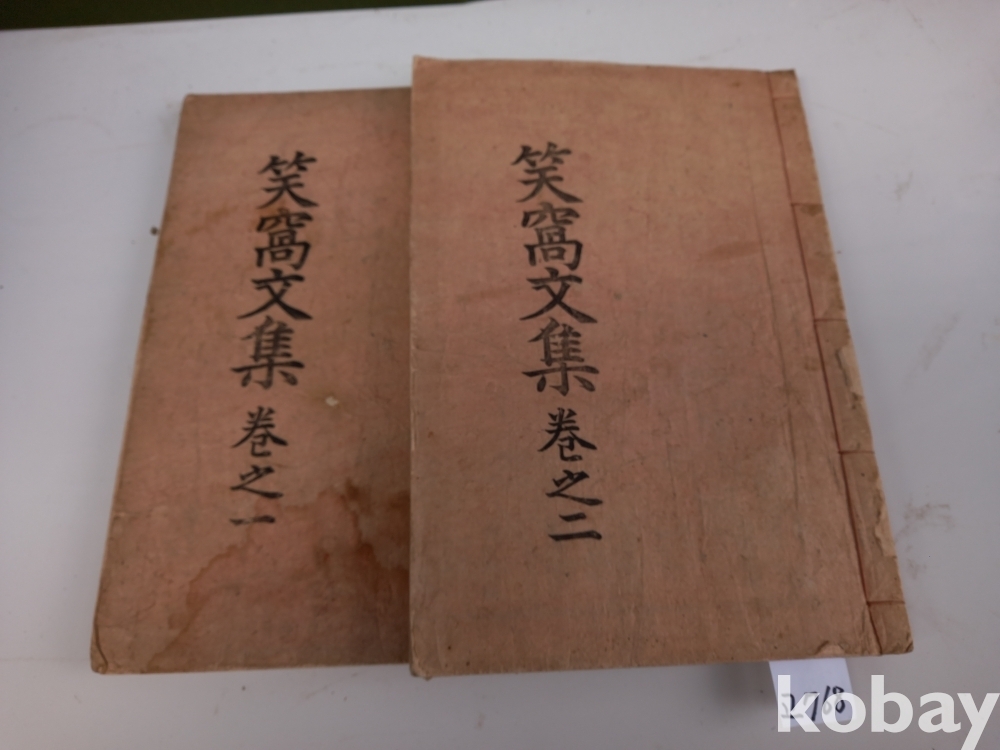 笑窩文集 卷之一
笑窩文集 卷之二
2768
kobay